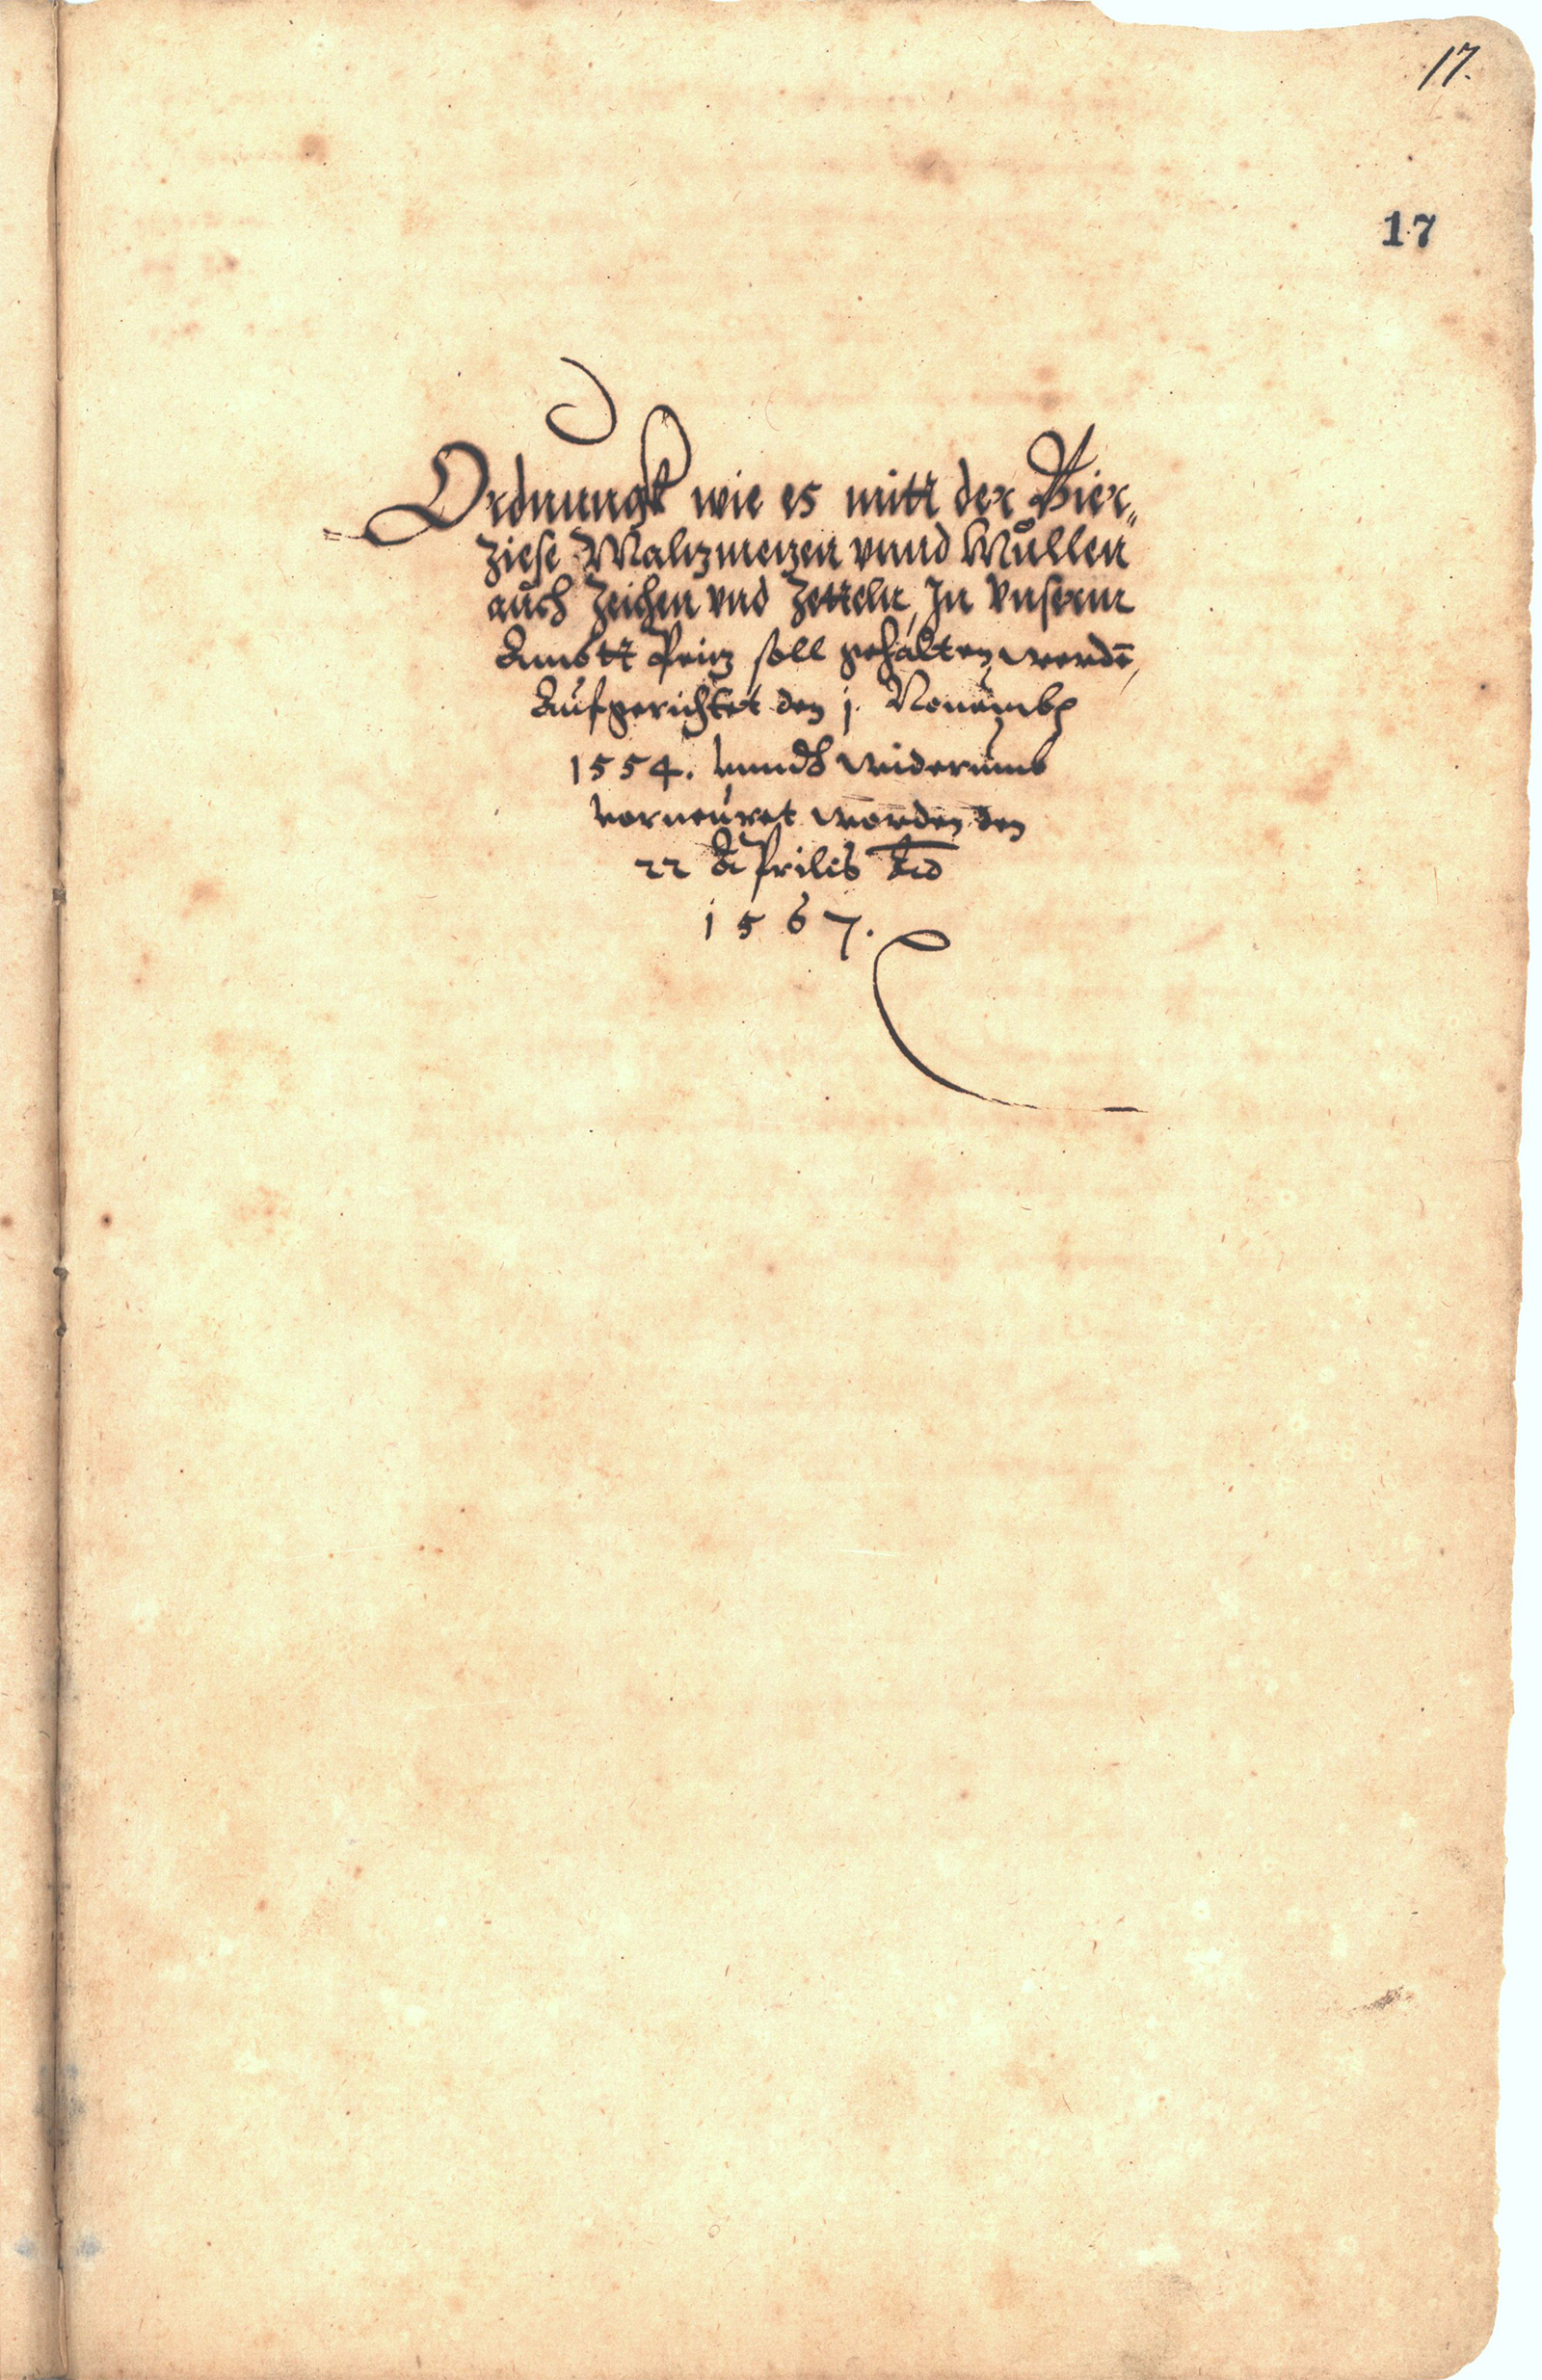 17.
17
Ordnungk wie es mitt der Bier„
Ziese Maltzmetzen vnnd Mullen
auch Zeichen vnd Zetteln, In Vnserm
Ambtt Peitz soll gehalten werdē,
Aufgerichtet den j. Nouemb
1554. vnndt widerumb
vorneuret worden den
22 Aprilis
1567.